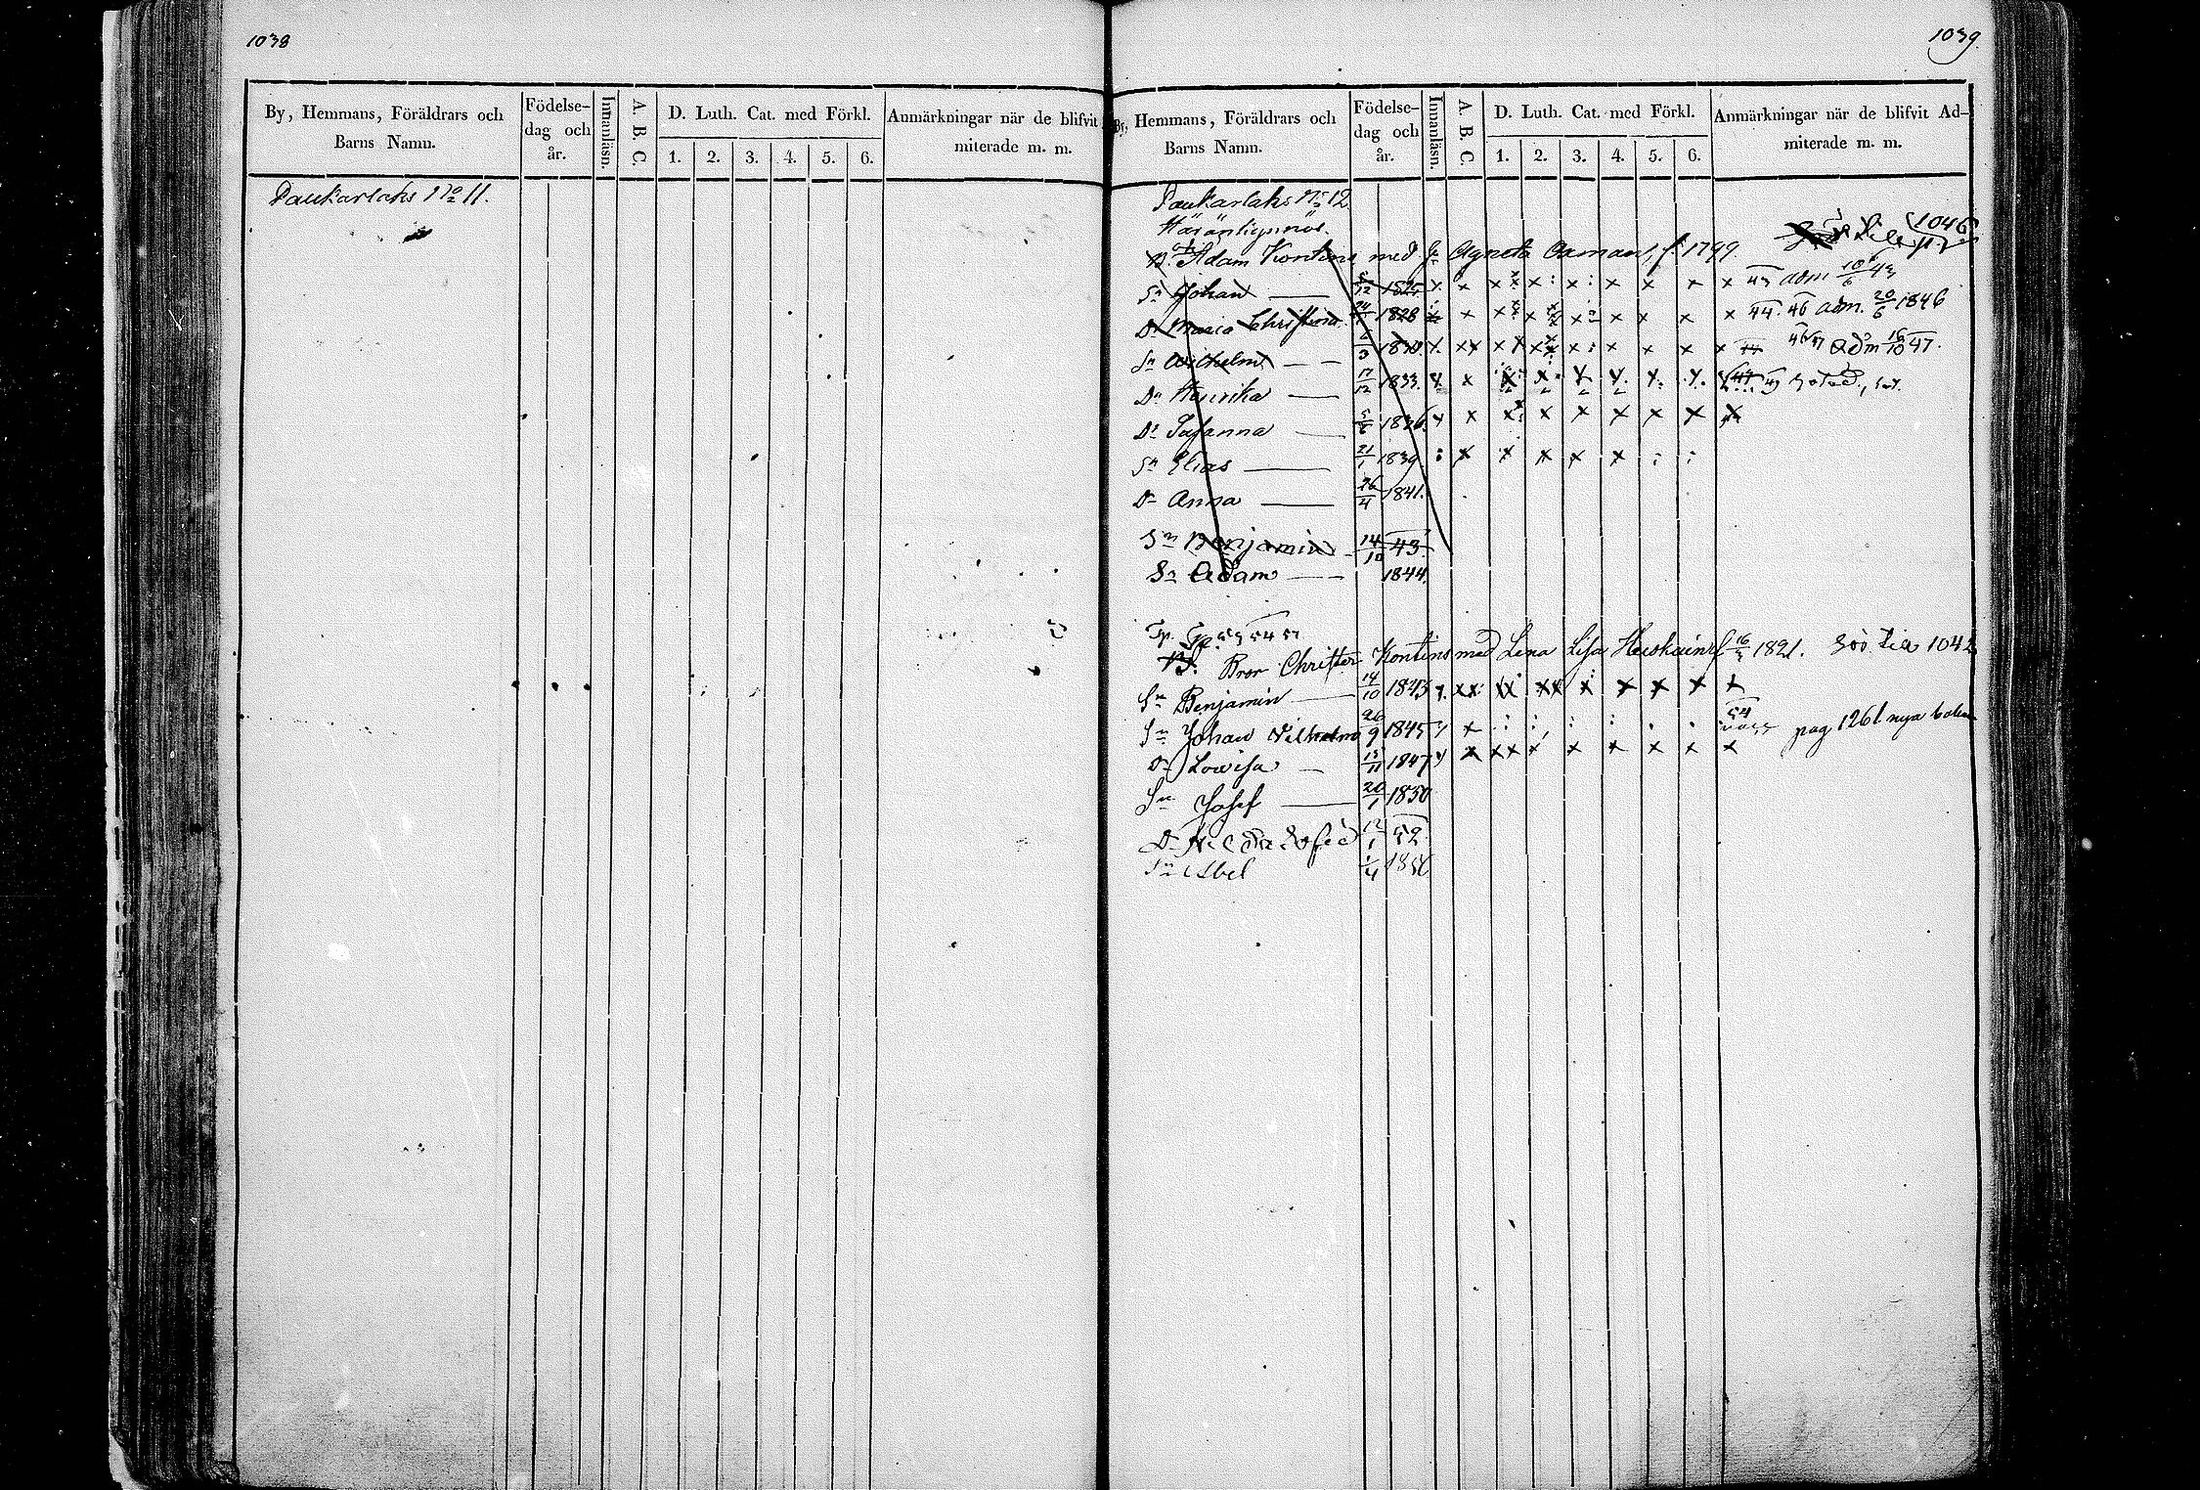 1038
By, Hemmans, Föräldrars och Barns Namn.
Födelse-dag och år.
Innanläsn.
A. B. C.
D. Luth. Cat. med Förkl.
1. 2. 3. 4. 5. 6.
Anmärkningar när de blifvit Ad-
miterade m. m.
Paukarlaks No 11.
1039.
By, Hemmans, Föräldrars och Barns Namn.
Födelse-dag och år.
Innanläsn.
A. B. C.
D. Luth. Cat. med Förkl.
1. 2. 3. 4. 5. 6.
Anmärkningar när de blifvit Ad-
miterade m. m.
Paukarlaks No 12.
1046
B. Adam Kontins med h. Agneta Oxman, f. 1799
Sn Johan 12 1825 x x x x x x x x x 43 adm 10/6 43
Dr Maria Christina 1828 x x x x x x x 44. 46 adm. 20/6 1846
Sn Wilhelm 3 1830 x xx x x x x x x x 46 47 adm 16/10 47.
Dr Henrika 17/12 1833 x x x x x x x x
Dr Susanna 5 1836 x x x x x x x x x
Sn Elias 21/1 1839 : x x x x x : :
Dr Anna 26/4 1841.
Sn Benjamin 14/10 43.
Sn Adam 1844.
53 54 57
B. Bror Christer Kontins med Lena Lisa Heiskain f. 16/3 1821. 1042
Sn Benjamin 14/10 1843 x. xx xx xx x x x x x
54
Sn Johan Vilhelm 26/9 1845 x pag 1261. nya boken
Dr Lowisa 15/11 1847 x x xx x x x x x x
Sn Josef 20/1 1850
Dr 12/1 52
Sn Abel 1/4 1856